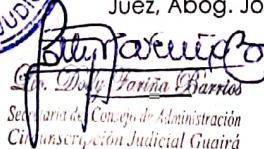 JUDIC
Juez, Abog. Jo
Dolly Fariña Barrios
Secretaria del Consejo de Administración
Circunscripción Judicial Guairá